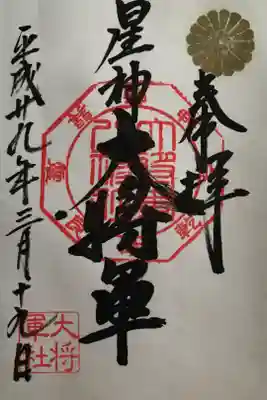 奉拝
星神
大将軍
平成廿九年三月十九日
大将
軍社